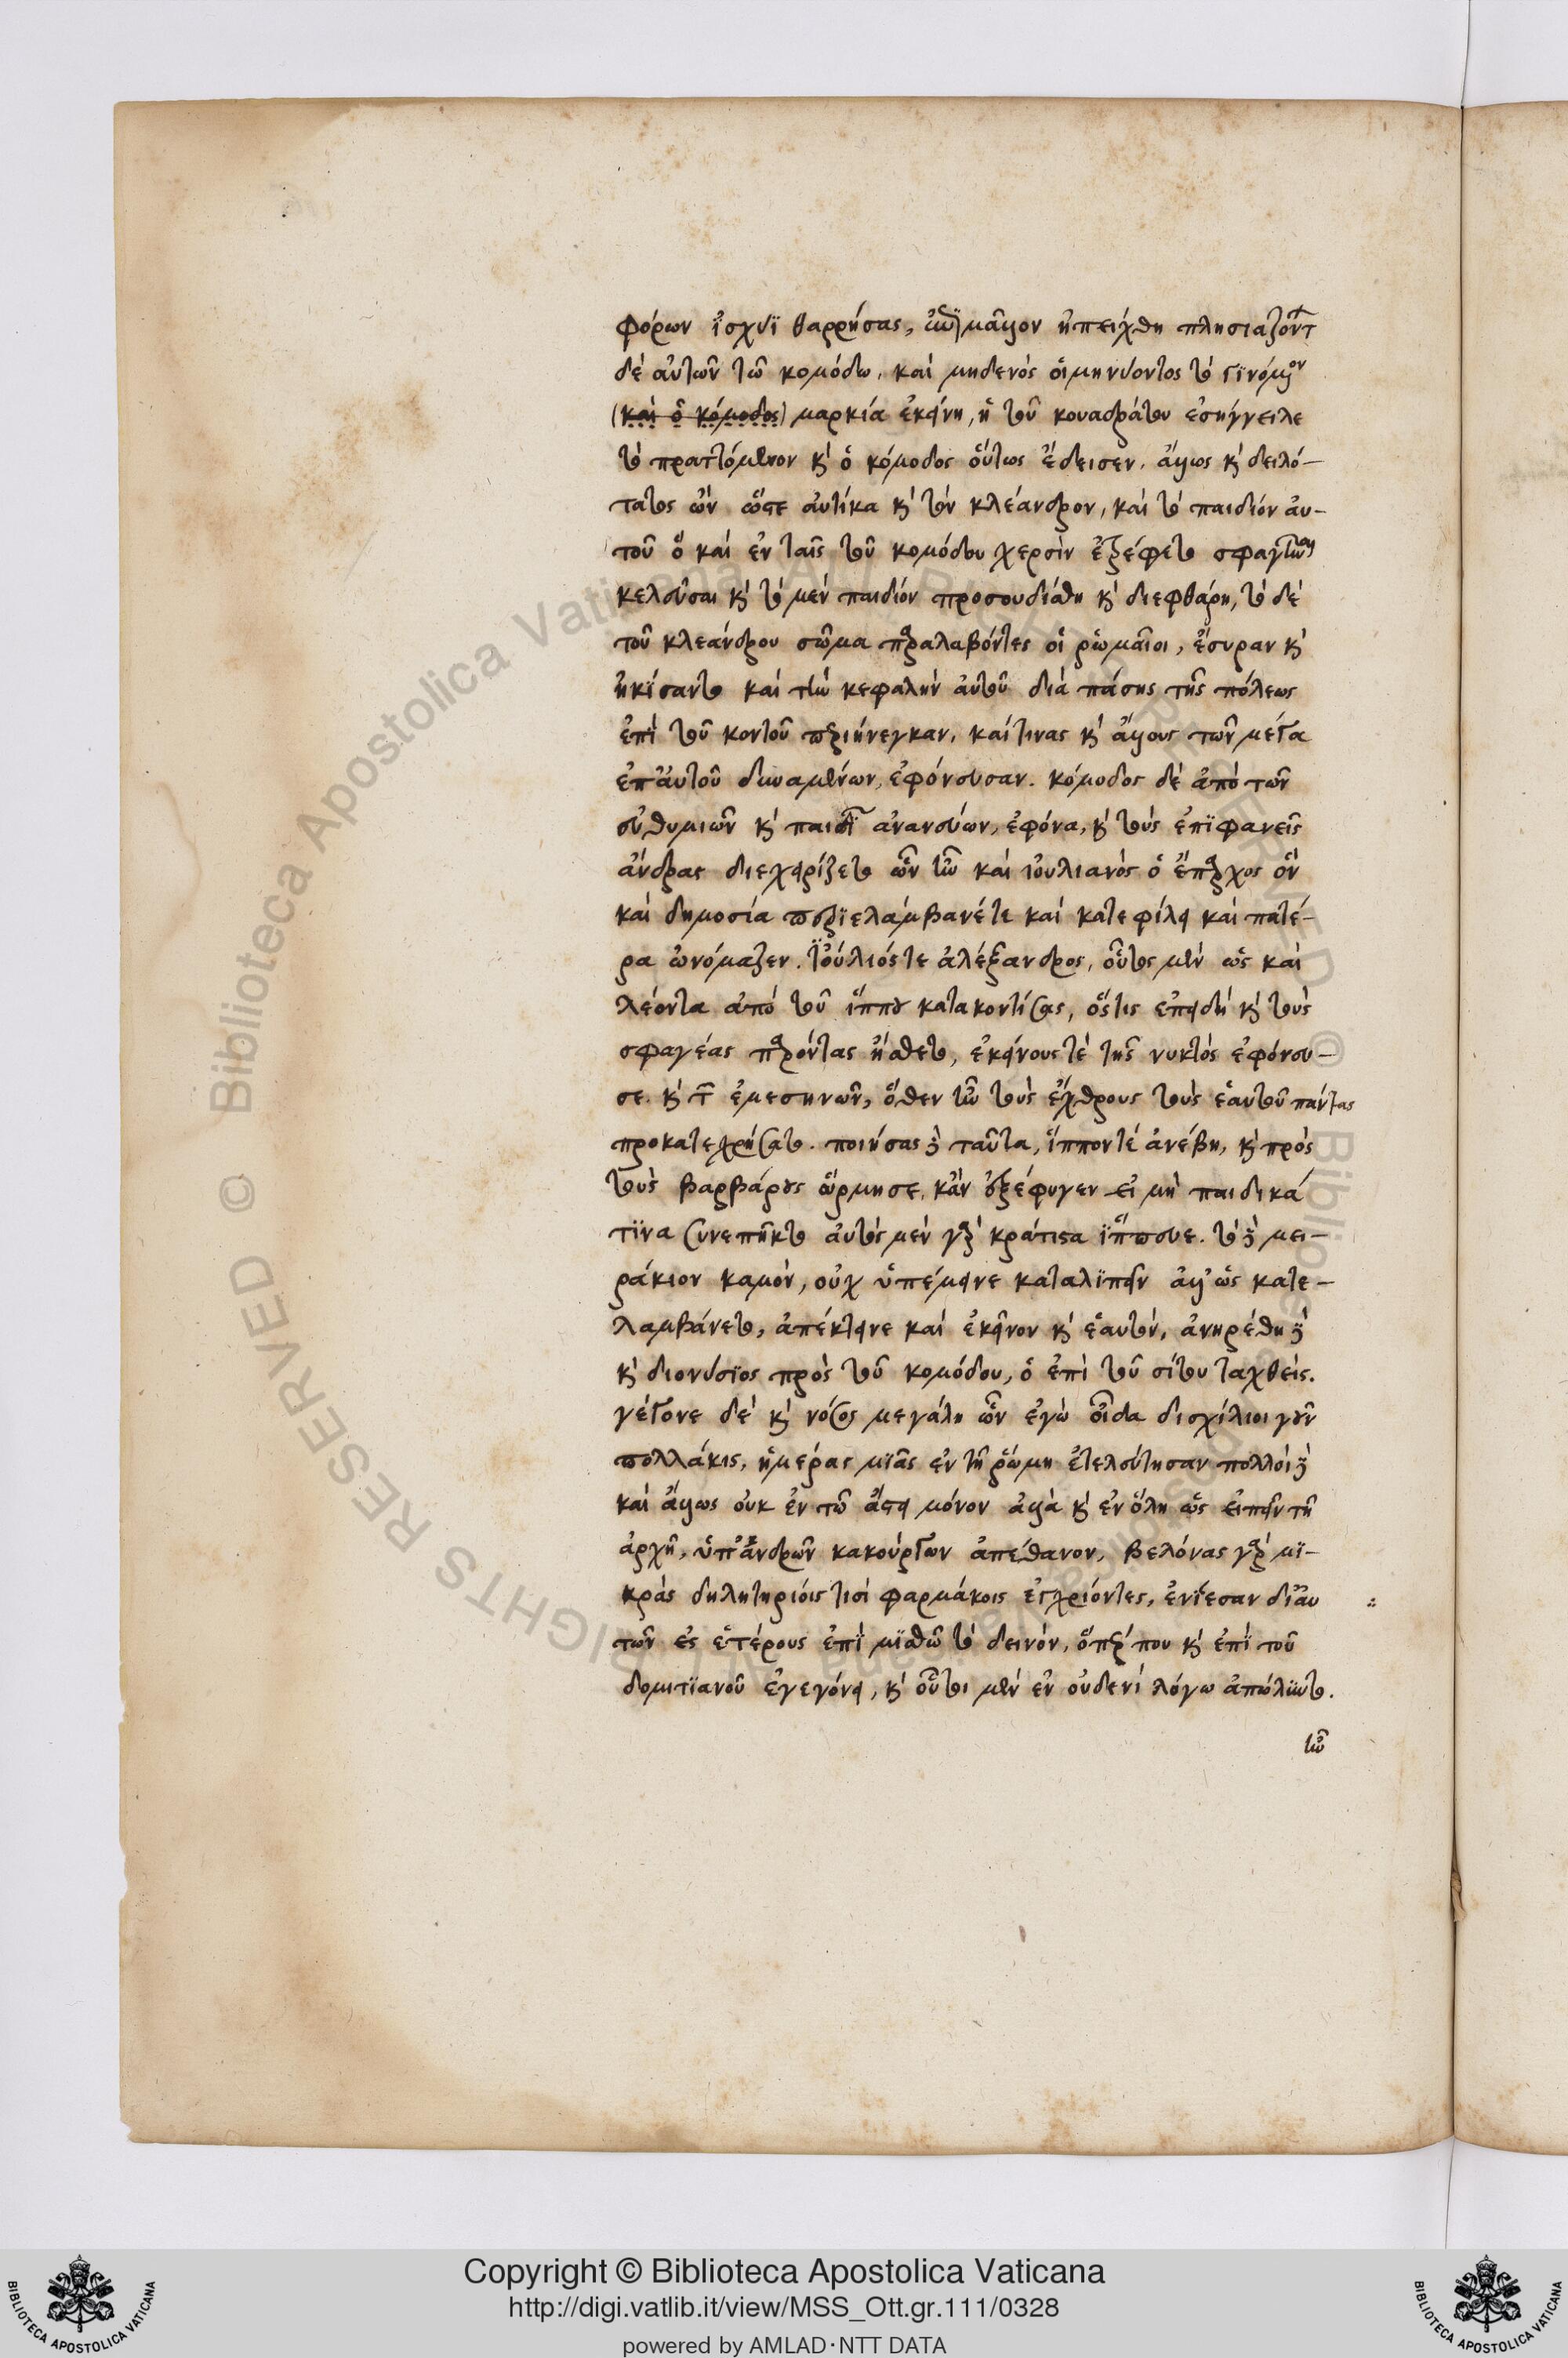 φόρων ἰσχύϊ θαρρήσας, μᾶλλον ἠπείχθη πλησιαζόντ
δέ αὐτῶν τῶ κομόδω, καί μηδενός οἱ μηνύοντος τό γινόμενον
(καί ὁ κόμοδος) μαρκία ἐκείνη, ἡ τοῦ κουαδράτου ἐσήγγειλε
τό πραττόμενον καί ὁ κόμοδος οὕτως ἔδεισεν. ἄλλως καί δειλό-
τατος ὤν ὥστε αὐτίκα καί τόν κλέανδρον, καί τό παιδίόν αὐ-
τοῦ ὅ καί ἐν ταῖς τοῦ κομόδου χερσίν ἐτρέφετο σφαγῆναι
κελεῦσαι καί τό μέν παιδίόν προσουδίσθη καί διεφθάρη, τό δέ
τοῦ κλεάνδρου σῶμα παραλαβόντες οἱ ῥωμαῖοι, ἔσυραν καί
ἠκίσαντο καί τήν κεφαλήν αὐτοῦ διά πάσης τῆς πόλεως
ἐπί τοῦ κοντοῦ περιήνεγκαν, καί τινας καί ἄλλους τῶν μέγα
ἐπ' αὐτοῦ δυναμένων, ἐφόνευσαν. κόμοδος δέ ἀπό τῶν
εὐθυμιῶν καί παιδιῶν ἀνανεύων, ἐφόνα, καί τούς ἐπιφανεῖς
ἄνδρας διεχειρίζετο ὧν ἦν καί ἰουλιανός ὁ ἔπαρχος ὅν
καί δημοσία περιελάμβανέ τε καί κατεφίλει καί πατέ-
ρα ὠνόμαζεν. Ἰούλιός τε ἀλέξανδρος, οὗτος μέν ὡς καί
λέοντα ἀπό τοῦ ἵππου κατακοντίσας, ὅστις ἐπειδή καί τούς
σφαγέας παρόντας ἤσθετο, ἐκείνους τέ τῆς νυκτός ἐφόνευ-
σε. καί τ ἐμεσηνῶν, ὅθεν ἦν τούς ἐχθρους τούς ἑαυτοῦ πάντας
προκατεχρήσατο. ποιήσας δέ ταῦτα, ἵππον τέ ἀνέβη, καί πρός
τούς βαρβάρους ὥρμησε, κἄν ἐξέφυγεν εἰ μή παιδικά
τινα συνεπῆκτο αὐτός μέν γάρ κράτιστα ἵππευε. τό δέ μει-
ράκιον καμόν, οὐχ ὑπέμεινε καταλιπεῖν ἀλλ' ὡς κατε-
λαμβάνετο, ἀπέκτεινε καί ἐκεῖνον καί ἑαυτόν, ἀνηρέθη δέ
καί διονύσιος πρός τοῦ κομόδου, ὁ ἐπί τοῦ σίτου ταχθείς.
γέγονε δέ καί νόσος μεγάλη ὧν ἐγώ οἶδα δισχίλιοι γοῦν
πολλάκις, ἡμέρας μιᾶς ἐν τῇ ῥώμη ἐτελεύτησαν πολλοί δέ
καί ἄλλως οὐκ ἐν τῶ ἄστει μόνον ἀλλά καί ἐν ὅλη ὡς εἰπεῖν τῇ
ἀρχῇ, ὑπ' ἀνδρῶν κακούργων ἀπέθανον, βελόνας γάρ μι-
κράς δηλητηρίοις τισί φαρμάκοις ἐγχρίοντες, ἐνίεσαν δι' αὐ
τῶν ἐς ἑτέρους ἐπί μισθῶ τό δεινόν, ὅπερ που καί ἐπί τοῦ
δομιτιανοῦ ἐγεγόνει, καί οὗτοι μέν ἐν οὐδενί λόγω ἀπώλλυντο.
ἦν
Copyright © Biblioteca Apostolica Vaticana
http://digi.vatlib.it/view/MSS_Ott.gr.111/0328
powered by AMLAD·NTT DATA
BIBLIOTECA APOSTOLICA VATICANA
BIBLIOTECA APOSTOLICA VATICANA